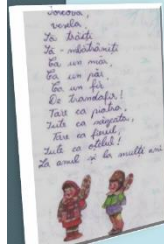 Sorcova,
vesela,
Să trăiți
Să-mbătrâniți
Ca un măr
Ca un păr,
Ca un fir
De trandafir!
Tare ca piatra,
Iute ca săgeata,
Tare ca fierul,
Iute ca oțelul!
La anul și la mulți ani